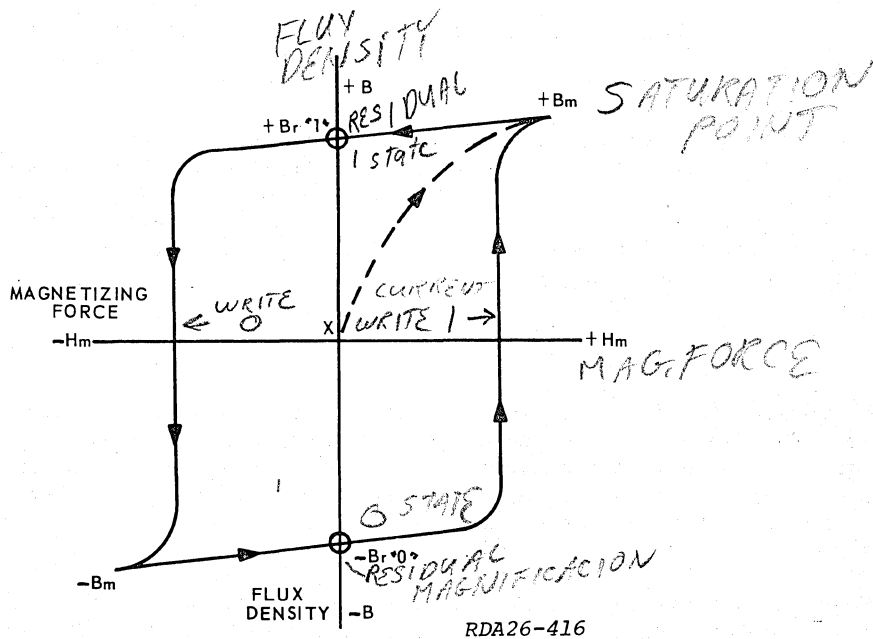 FLUX
DENSITY
+B
+Bm
SATURATION
POINT
+Br "1"
RESIDUAL
1 state
MAGNETIZING
FORCE
← WRITE
0
CURRENT
WRITE 1 →
X
-Hm
+Hm
MAG. FORCE
0 STATE
-Br "0"
RESIDUAL
MAGNIFICACION
-Bm
FLUX
DENSITY
-B
RDA26-416